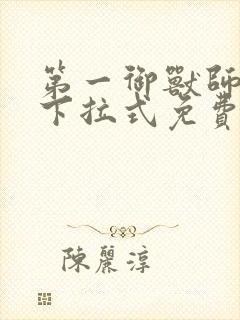 第一御獸師
下拉式免費
陳麗淳